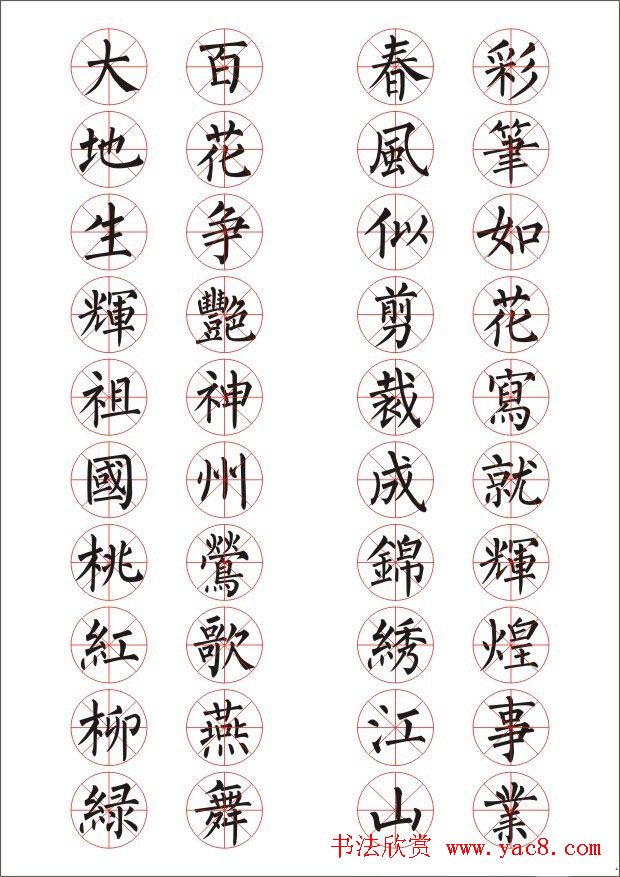 彩筆如花寫就輝煌事業
春風似剪裁成錦綉江山
百花争艷神州鶯歌燕舞
大地生輝祖國桃紅柳緑
书法欣赏 www.yac8.com